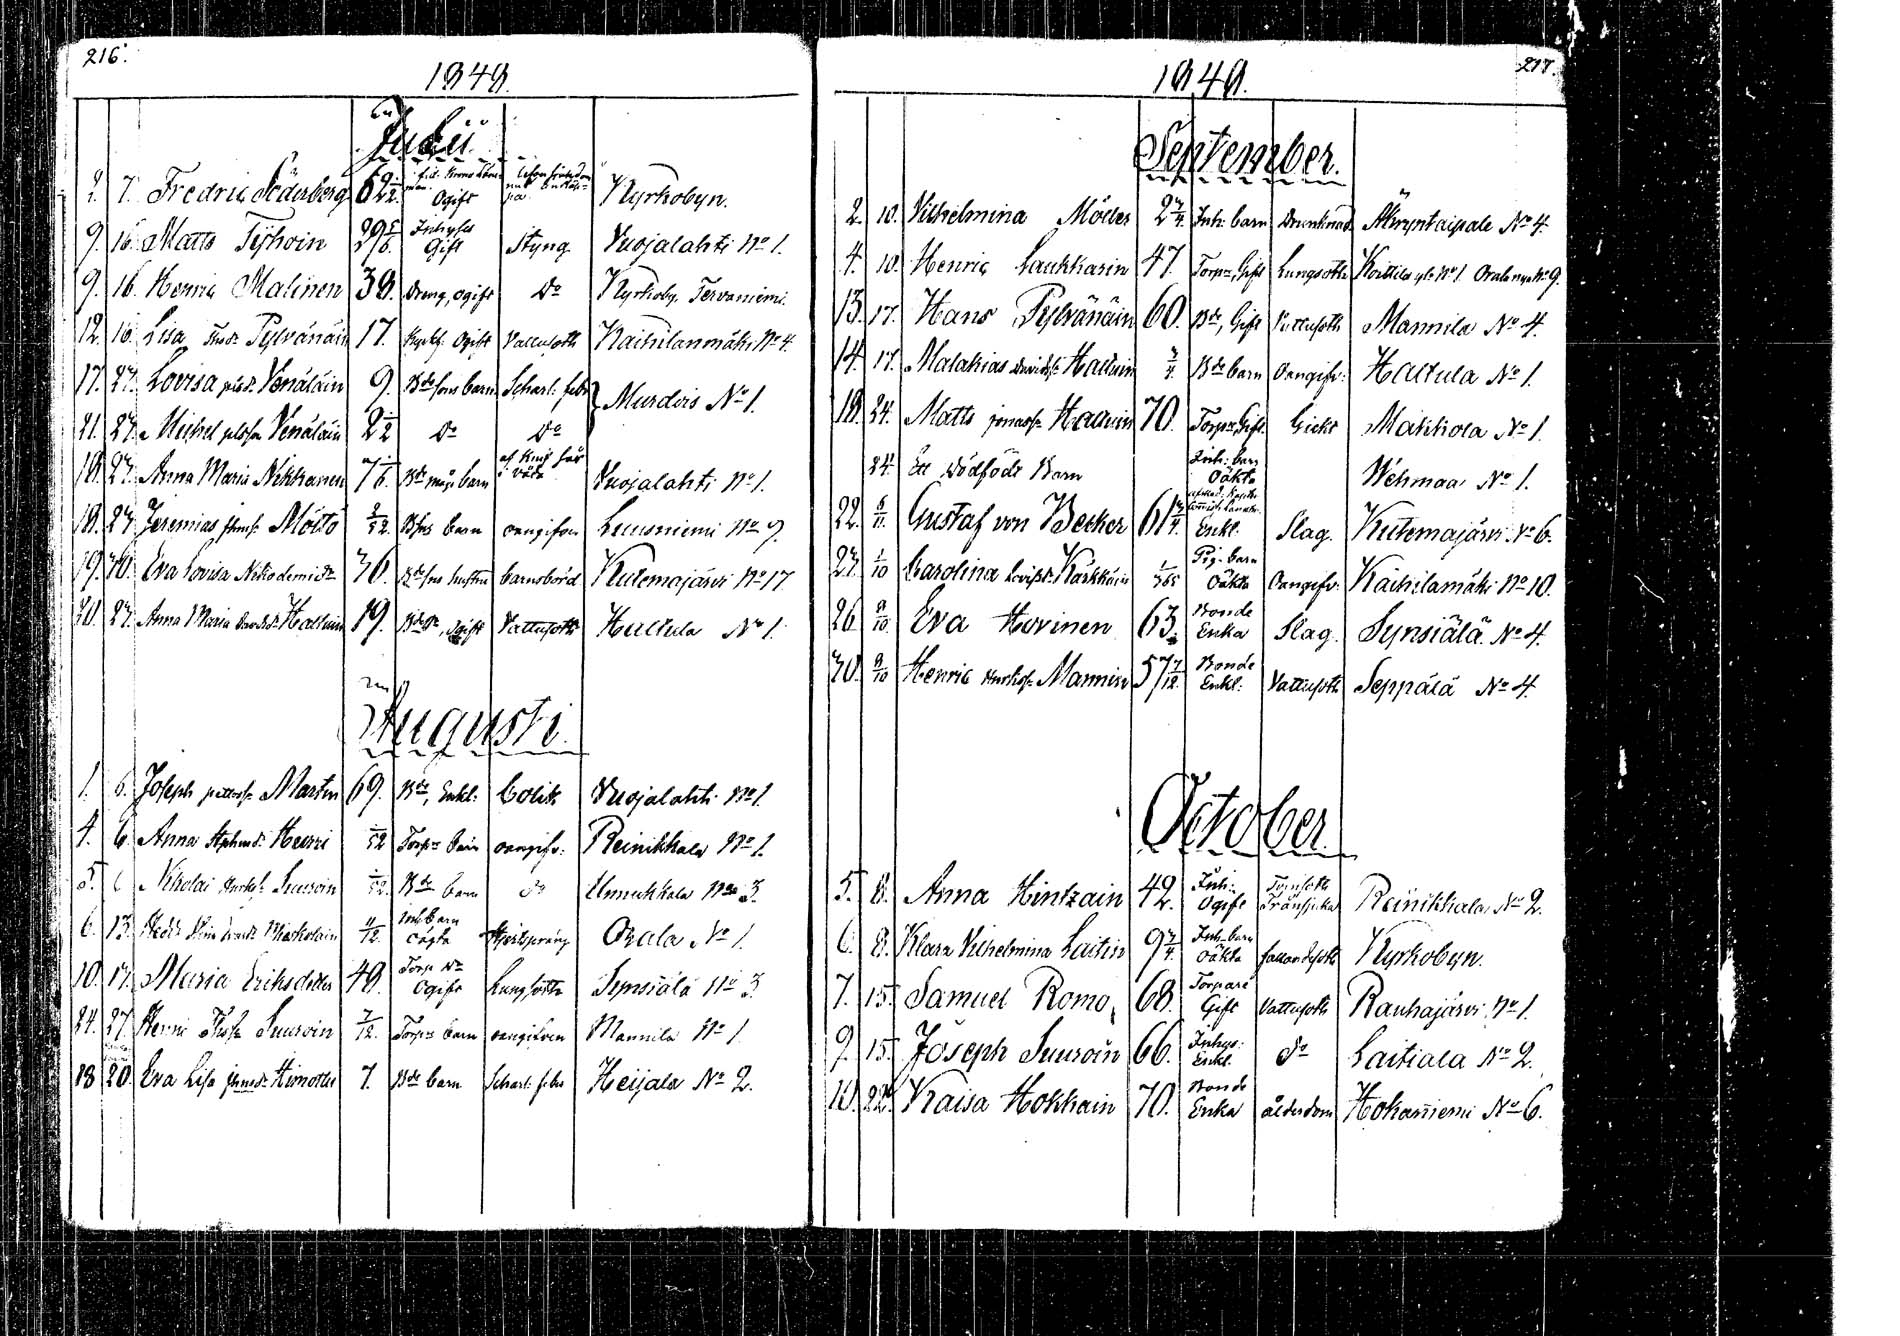 216.
1848.
Julii
2. 7. Fredric Söderberg 62 1/2. Ogift Kyrkobyn.
9. 16. Matts Tyhoin 29 5/6. Inhyses Gift Styng Vuojalahti No 1.
9. 16. Henric Malinen 38. Dreng, ogift Do Kyrkoby. Tervaniemi.
12. 16. Lisa Pylvänäin 17. Ogift Vattusoth Kaihilanmäki No 4.
17. 27. Lovisa Venäläin 9. Bdesons barn Scharl: febr Murdois No 1.
21. 27. Michel Venäläin 2 1/2 Do Do
18. 27. Anna Maria Nikkanen 1/6. Bde barn af våda Vuojalahti No 1.
18. 27. Jeremias Möttö 2/52 barn oangifven Luusniemi No 9.
19. 30. Eva Lovisa Nikodemidr 36. hustru barnsbörd Kutemajärvi No 17
30. 27. Anna Maria Halluin 19. ogift Vattusoth Hallula No 1.
Augusti.
1. 6. Joseph petterss. Martin 69. Bde, Enkl: Colik Vuojalahti No 1.
4. 6. Anna Heinoi 1/52 Torpre barn oangifv: Reinikkala No 1.
5. 6. Nikolai Suuroin 1/52. Bde barn do Unnukkala No 3.
6. 13. 11/12. Inh barn oägta Orala No 1.
10. 17. Maria Eriksdotter 48. Torp Do Ogift Lungsoth Synsiälä No 3
24. 27. Henric Suuroin 7/12. Torpre barn oangifven Mannila No 1.
18 20. Eva Lisa 7. Bde barn Scharl: febr Heijala No 2.
217.
1848.
September.
2. 10. Vilhelmina Möller 2 3/4. Inh: barn Drunknad. No 4.
4. 10. Henric Laukkarin 47. Torpre, Gift Lungsoth No 9.
13. 17. Hans Pylvänäin 60. Bde, Gift Vattusoth Mannila No 4.
14. 17. Malakias Davidss. Halluin 3/4. Bde barn Oangifv: Hallula No 1.
18. 24. Matts jonass. Halluin 70. Torpre, Gift. Gickt Makkola No 1.
24. Ett Dödfödt Barn Inh: barn Oäkta Wehmaa No 1.
22. 5/11. Gustaf von Becker 61 3/4. Enkl. Slag. Kutemajärvi No 6.
27. 1/10 Carolina Kärkkäin 1/365 Pig. barn Oäkta Oangifv: Kaihilamäki No 10.
26. 8/10. Eva Hovinen 63. Bonde Enka Slag. Synsiälä No 4.
30. 8/10 Henric Mannin 57 7/12. Bonde Enkl: Vattusoth Seppälä No 4.
October.
5. 8. Anna Hintzain 42. Inh: Ogift Reinikkala No 2.
6. 8. Klara Vilhelmina Laitin 9 3/4. Inh: barn Oäkta fallandesoth Kyrkobyn.
7. 15. Samuel Romo, 68. Torpare Gift Vattusoth Rauhajärvi No 1.
9. 15. Joseph Suuroin 66. Inhys: Enkl. Do Laitiala No 2.
10. 22. Kaisa Hokkain 70. Bonde Enka ålderdom Hokaniemi No 6.